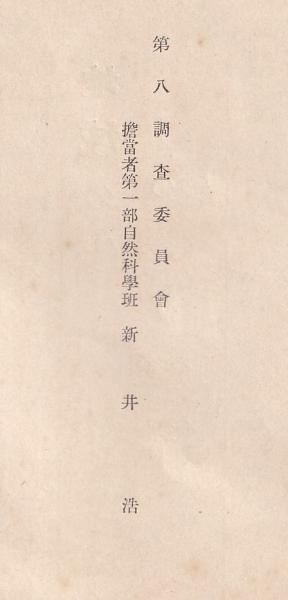 第八調査委員會
擔當者第一部自然科學班 新井浩